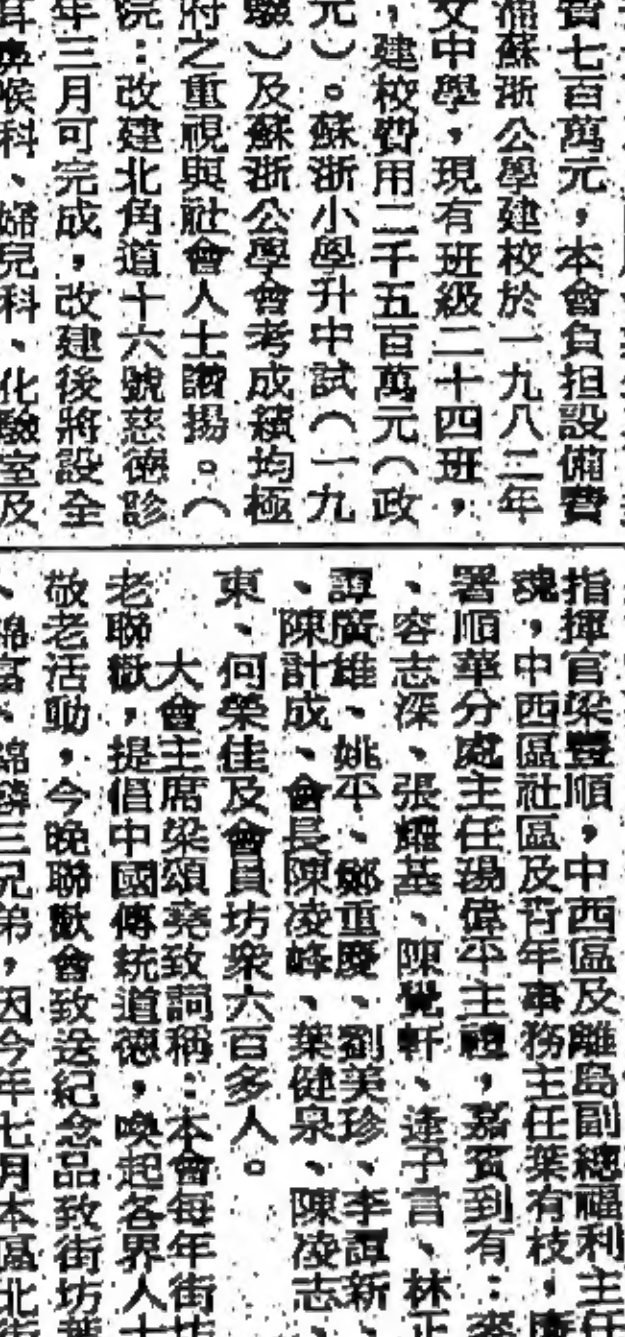 費七百萬元，本會負担設備費
備蘇浙公學建校於一九八二年
文中學，現有班級二十四班，
，建校費用二千五百萬元（政
元）。蘇浙小學升中試（一九
驗）及蘇浙公學會考成績均極
府之重視與社會人士讚揚。（
院：改建北角道十六號慈德診
年三月可完成，改建後將設全
耳鼻喉科、婦兒科、化驗室及
指揮官梁豐順，中西區及離島副總福利主任
魂，中西區社區及青年事務主任葉有枝，廉
署順華分處主任楊偉平主禮，嘉賓到有：麥
、容志深、張耀基、陳覺軒、逢子言、林正
譚廣雄、姚平、鄭重慶、劉美珍、李譚新
、陳計成、會長陳凌峰、葉健泉、陳凌志、
東、何榮佳及會員坊衆六百多人。
大會主席梁頌堯致詞稱：本會每年街坊
老聯歡，提倡中國傳統道德，喚起各界人士
敬老活動，今晚聯歡會致送紀念品致街坊葉
、錦富、錦麟三兄弟，因今年七月本區北街